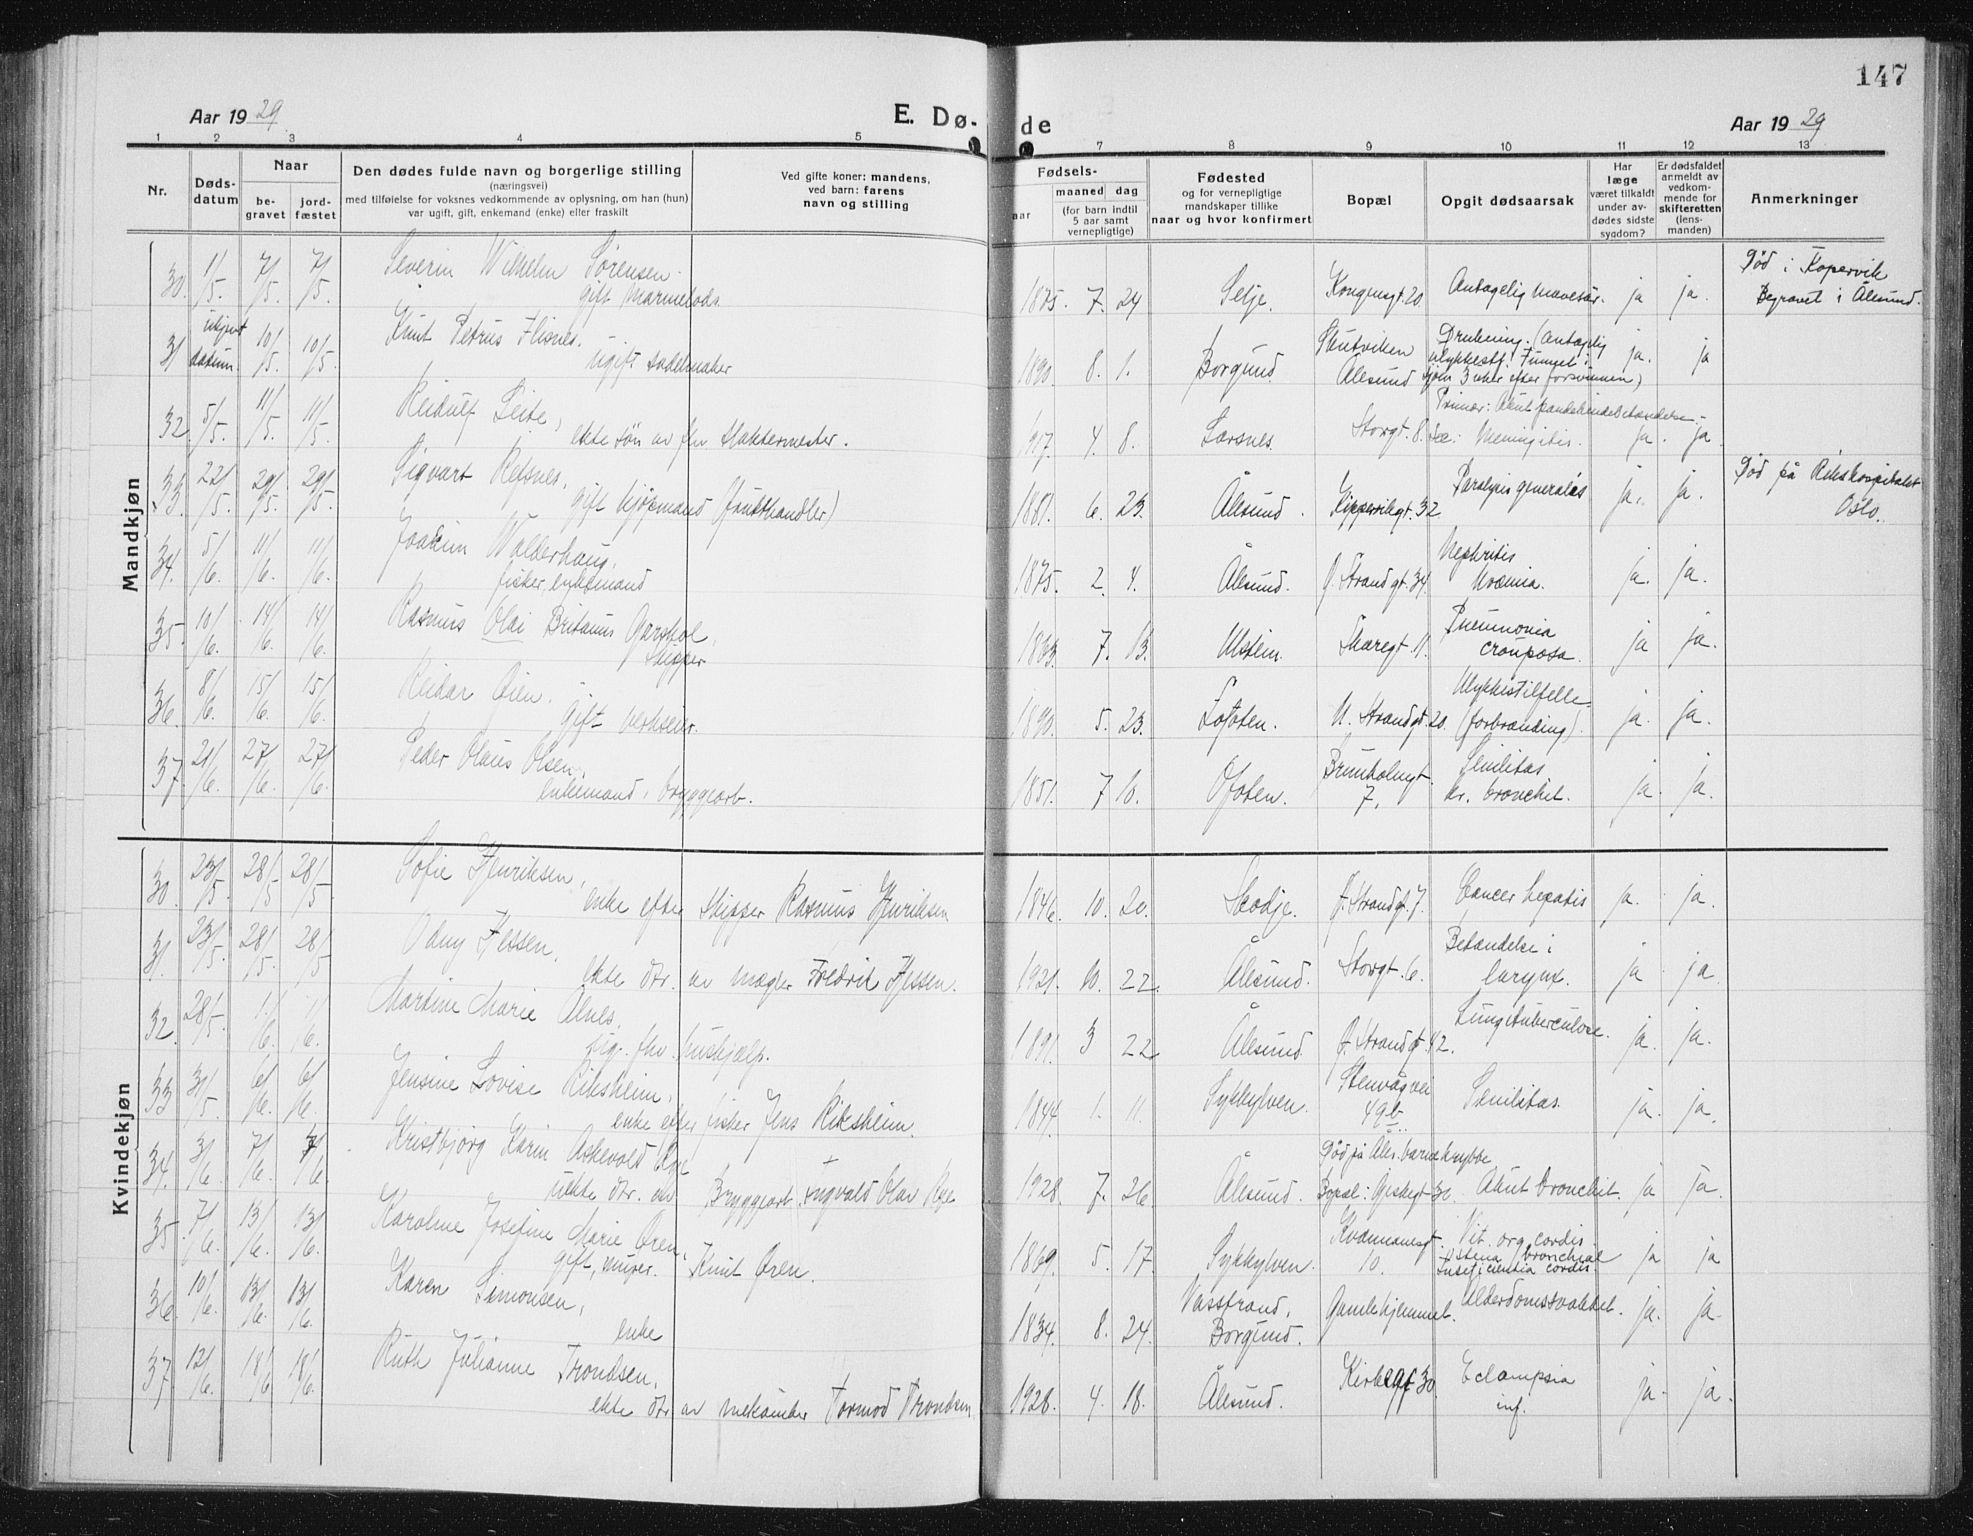 147
Aar 1929
E. Dø-
de
Aar 1929
1 2 3 4 5 7 8 9 10 11 12 13
Nr.
Døds-
datum
Naar
be-
gravet
jord-
fæstet
Den dødes fulde navn og borgerlige stilling
(næringsvei)
med tilføielse for voksnes vedkommende av oplysning, om han (hun)
var ugift, gift, enkemand (enke) eller fraskilt
Ved gifte koner: mandens,
ved barn: farens
navn og stilling
Fødsels-
aar
maaned dag
(for barn indtil
5 aar samt
vernepligtige)
Fødested
og for vernepligtige
mandskaper tillike
naar og hvor konfirmert
Bopæl
Opgit dødsaarsak
Har
læge
været tilkaldt
under av-
dødes sidste
sygdom?
Er dødsfaldet
anmeldt av
vedkom-
mende for
skifteretten
(lens-
manden)
Anmerkninger
Mandkjøn
30. 1/5. 7/5. 7/5. Severin Wilhelm Sørensen.
gift 1875. 7. 24 Selje. Kongensgt. 20 Antagelig mavesår. ja ja. Død i Kopervik
Begravet i Ålesund.
31 ukjent datum. 10/5. 10/5. Knut Petrus Flisnes.
ugift sadelmaker 1890. 8. 1. Borgund Skutviken Ålesund Drukning. (Antagelig
ulykkestf. Funnet i
sjøen 3 uker efter forsvinnen) ja. ja
32. 5/5. 11/5. 11/5. Reidulf Leite,
ekte søn av fhv. slaktermester. 1917. 4. 8. Larsnes. Storgt. 8. Primær: Akut pandehulebetændelse -
Sec: Meningitis. ja. ja.
33. 22/5. 29/5. 29/5. Sigvart Refsnes.
gift kjøpmand (frukthandler) 1881. 6. 23. Ålesund. Kippervikgt. 32 Paralysis generales ja. ja. Død på Rikshospitalet
Oslo.
34. 5/6. 11/6. 11/6. Joakim Walderhaug.
fisker, enkemand 1875. 2. 4. Ålesund. Ø. Strandgt. 34. Nephritis
Uræmia. ja. ja.
35. 10/6. 14/6. 14/6. Rasmus Olai Britanus Garshol,
skipper 1863. 7. 13. Ulstein. Skaregt. 11. Pneumonia
crouposa. ja ja.
36. 8/6. 15/6. 15/6. Reidar Øien.
gift verkseier. 1893. 5. 23. Lofoten. N. Strandgt. 20. Ulykkestilfelle
(forbrænding). ja. ja.
37. 21/6. 27/6. 27/6. Peder Olaus Olsen,
enkemand, bryggearb. 1851. 7 10. Ofoten. Brunholmgt.
7. Senilitas
kr. bronchit. ja. ja.
Kvindekjøn
30. 23/5. 28/5. 28/5. Sofie Henriksen,
enke efter skipper Rasmus Henriksen 1846. 10. 20. Skodje. Ø. Strandgt. 7. Cancer hepatis ja. ja.
31. 23/5. 28/5. 28/5. Odny Jessen,
ekte dtr. av mægler Fredrik Jessen. 1921. 10. 22. Ålesund. Storgt. 6. Betændelse i
larynx. ja ja.
32. 28/5. 1/6. 1/6. Martine Marie Alnes,
fhv. hushjælp. 1891. 3 22 Ålesund. Ø. Strandgt. 42. Lungetuberculose. ja. ja.
33 31/5. 6/6. 6/6. Jensine Lovise Riksheim,
enke efter fisker Jens Riksheim. 1844. 1. 11. Sykkylven. Stenvågvei
49b. Senilitas. ja. ja.
34. 3/6. 7/6. 7/6. Kristbjørg Karin Askevold Rye
uekte dtr. av Bryggearb. Ingvald Olav Rye 1928. 7. 26. Ålesund. Død på Åles. barnekrybbe
Bopæl: Giskegt 30. Akut bronchit. ja ja.
35 7/6. 13/6. 13/6. Karoline Josefine Marie Øren,
gift, murer. Knut Øren. 1869. 5. 17. Sykkylven. Kvennanesgt.
10. Vit. org. cordis
Astma bronchial
Insuficientia cordis. ja ja
36. 10/6. 13/6. 13/6. Karen Simonsen,
enke 1834. 8. 24. Vasstrand,
Borgund. Gamlehjemmet. Alderdomssvakhet. ja. ja.
37. 12/6. 18/6 18/6. Ruth Julianne Trondsen,
ekte dtr av mekaniker Tormod Trondsen 1928. 4. 18. Ålesund. Kirkegt 30 Eclampsia
inf. ja. ja.